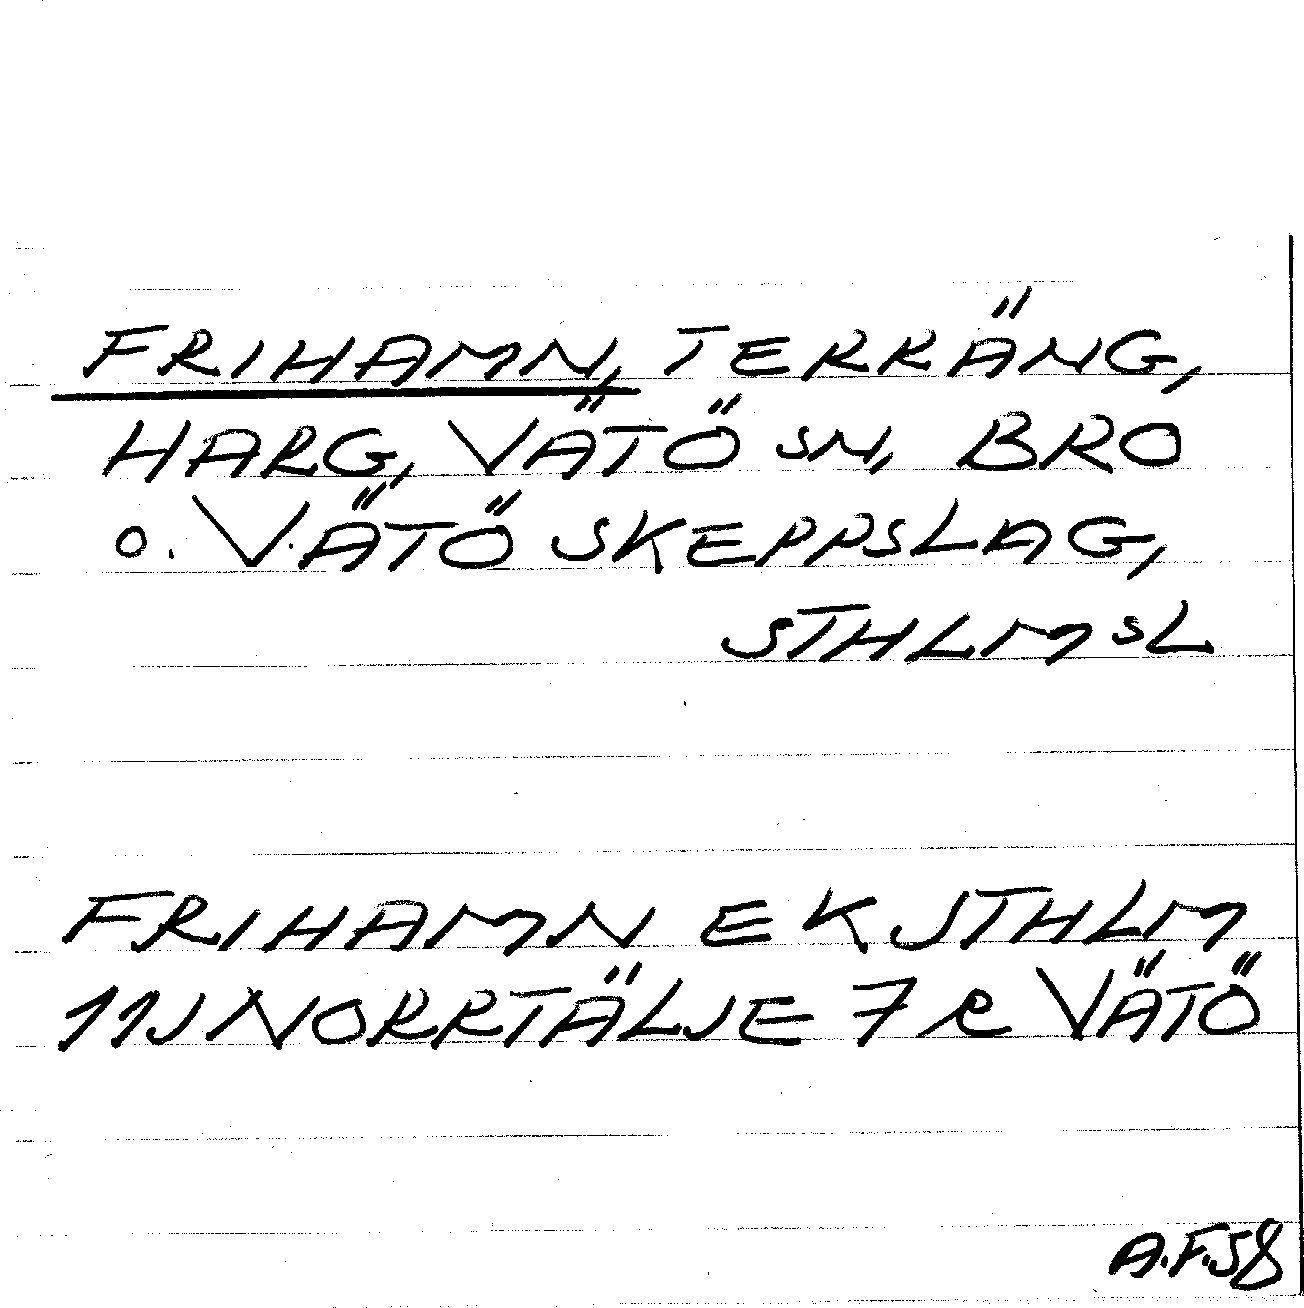 FRIHAMN, TERRÄNG,
HARG, VÄTÖ SN, BRO
O. VÄTÖ SKEPPSLAG,
STHLMSL
FRIHAMN EK STHLM
11J NORRTÄLJE 7 R VÄTÖ
A.F.58